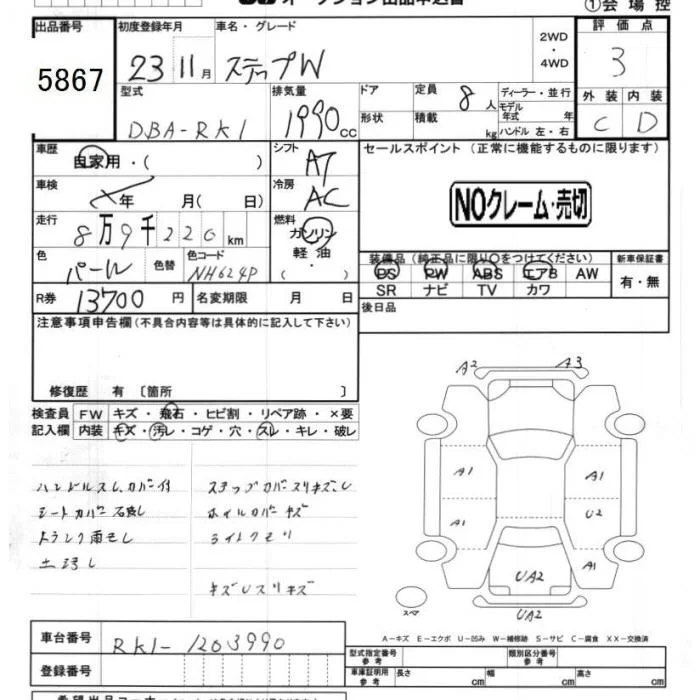 ①会場控
出品番号 初度登録年月 車名・グレード 2WD・4WD 評価点
5867 23 11月 ステップW 3
型式 排気量 ドア 定員 8人 ディーラー・並行 外装 内装
DBA-RK1 1990cc 形状 積載 kg モデル年式 年 ハンドル 左・右 C D
車歴 自家用・( ) シフト AT セールスポイント (正常に機能するものに限ります)
車検 年 月( 日) 冷房 AC NOクレーム・売切
走行 8万9千220km 燃料 ガソリン 軽油 ・( )
装備品 (純正品に限り○をつけてください) 新車保証書
色 パール 色替 色コード NH624P PS PW ABS エアB AW 有・無
SR ナビ TV カワ
R券 13700円 名変期限 月 日 後日品
注意事項申告欄 (不具合内容等は具体的に記入して下さい)
修復歴 有 〔箇所 〕
検査員 FW キズ・飛石・ヒビ割・リペア跡・×要
記入欄 内装 キズ・汚レ・コゲ・穴・スレ・キレ・破レ
A2 A3
ハンドルスレ、カバー付 ステップカバースリキズ、U
シートカバー
ホイルカバーキズ
トランク雨モレ ライトクモリ
キズUスリキズ
A1 A1
A1 U2
UA2 A1
スペア UA2
A-キズ E-エクボ U-凹み W-補修跡 S-サビ C-腐食 XX-交換済
車台番号 RK1-1203990 型式指定番号 参考 類別区分番号 参考
登録番号 車庫証明用 参考 長さ cm 幅 cm 高さ cm